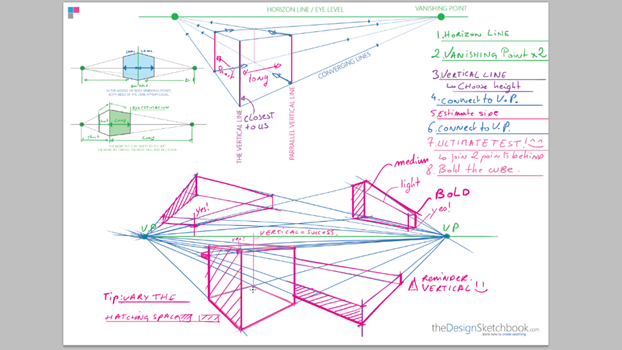 HORIZON LINE / EYE LEVEL
VANISHING POINT
CONVERGING LINES
THE VERTICAL LINE
PARRALEL VERTICAL LINE
short
long
CLOSEST
TO US
1. Horizon Line
2. Vanishing Point x2
3. Vertical Line
↳ Choose height
4. Connect to V.P.
5. Estimate side
6. Connect to V.P.
7. Ultimate Test!
↳ Join 2 points behind
8. Bold the cube.
medium
light
BOLD
yes!
yes!
V.P
VERTICAL = SUCCESS.
yes!
VP
Tip: VARY THE
HATCHING SPACE
REMINDER.
VERTICAL!!
theDesignSketchbook.com